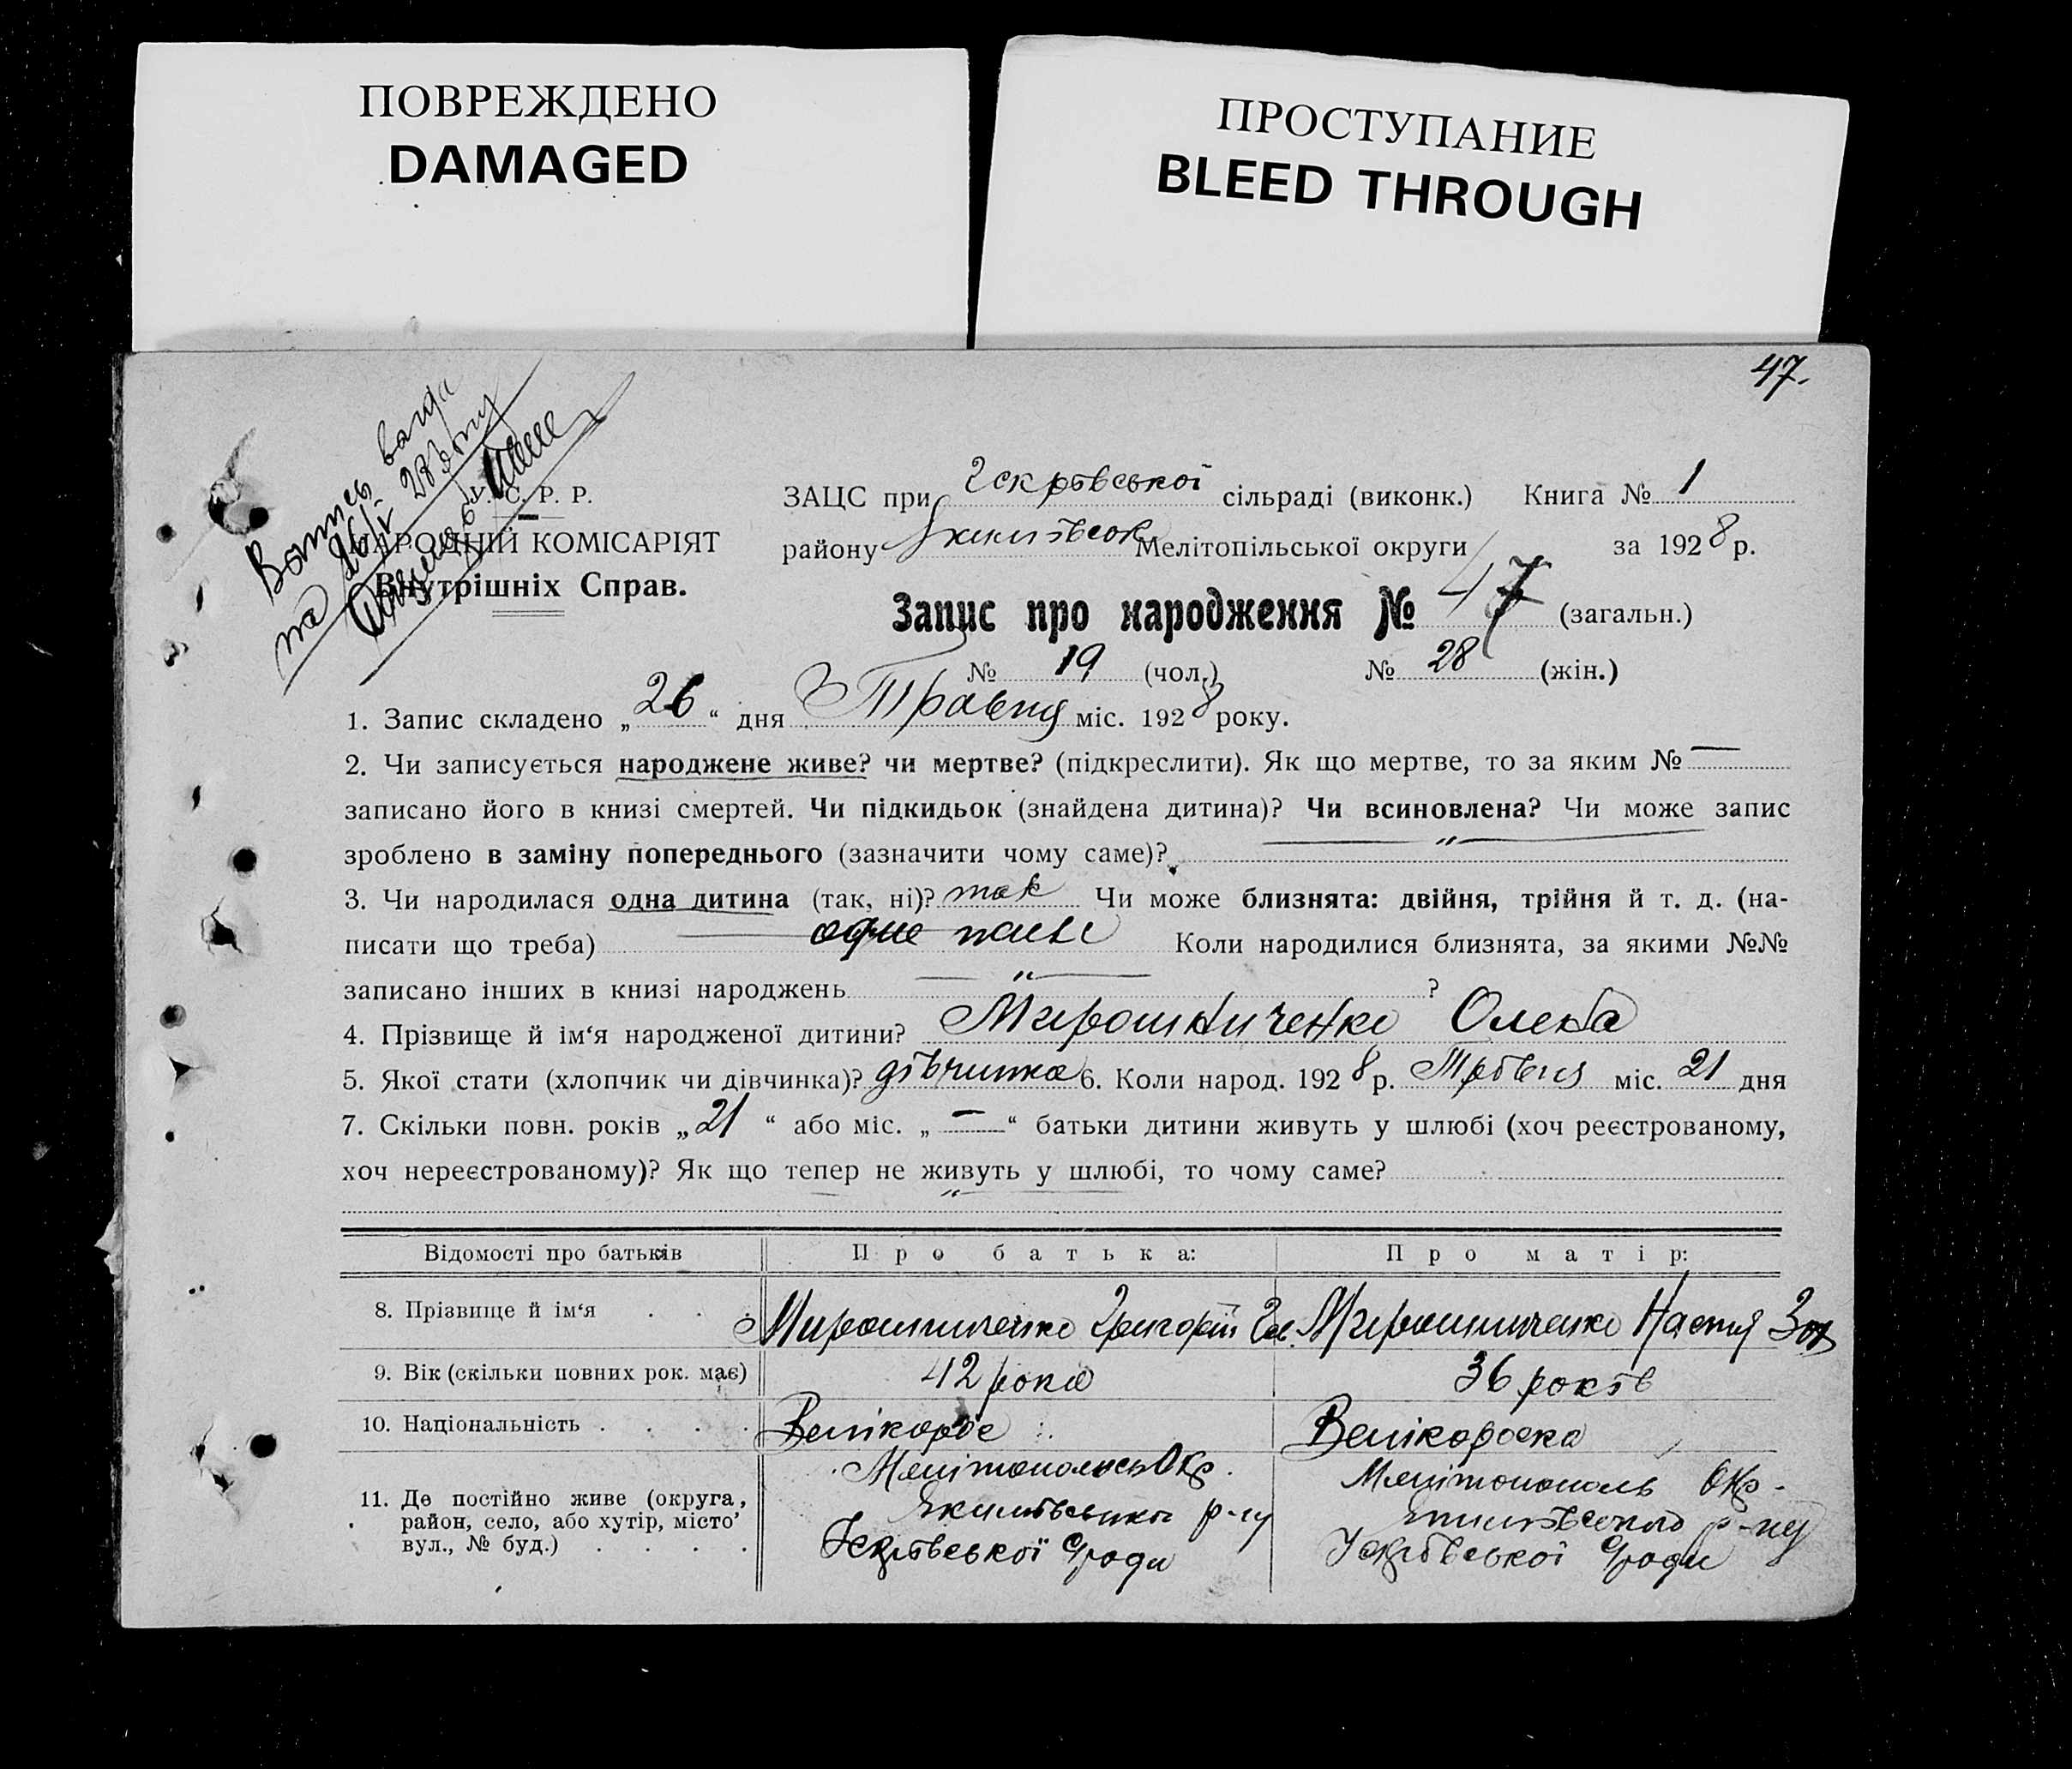 ПОВРЕЖДЕНО
DAMAGED
ПРОСТУПАНИЕ
BLEED THROUGH
47.
на
У. С. Р. Р.
НАРОДНІЙ КОМІСАРІЯТ
Внутрішніх Справ.
ЗАЦС при Іскрівської сільраді (виконк.) Книга № 1
району Якимівськ Мелітопільської округи за 1928 р.
Запис про народження № 47 (загальн.)
№ 19 (чол.) № 28 (жін.)
1. Запис складено „26“ дня Травня міс. 1928 року.
2. Чи записується народжене живе? чи мертве? (підкреслити). Як що мертве, то за яким № —
записано його в книзі смертей. Чи підкидьок (знайдена дитина)? Чи всиновлена? Чи може запис
зроблено в заміну попереднього (зазначити чому саме)? — „ —
3. Чи народилася одна дитина (так, ні)? так Чи може близнята: двійня, трійня й т. д. (на-
писати що треба) — одне Коли народилися близнята, за якими №№
записано інших в книзі народжень — „ — ?
4. Прізвище й ім‘я народженої дитини? Мирошниченко Олена
5. Якої стати (хлопчик чи дівчинка)? дівчинка 6. Коли народ. 1928 р. Травня міс. 21 дня
7. Скільки повн. років „21“ або міс. „—“ батьки дитини живуть у шлюбі (хоч реєстрованому,
хоч нереєстрованому)? Як що тепер не живуть у шлюбі, то чому саме?
— „ —
Відомості про батьків Про батька: Про матір:
8. Прізвище й ім‘я . . . Мирошниченко Григорій Мирошниченко Настя
9. Вік (скільки повних рок. має) 42 роки 36 років
10. Національність . . . . Велікорос Велікороска
11. Де постійно живе (округа, район, село, або хутір, місто’ вул., № буд.) . . . .
Мелітопольсь Окр.
Якимівського р-ну
Іскрівської С/ради
Мелітополь Окр.
Якимівського р-ну
Іскрівської С/ради